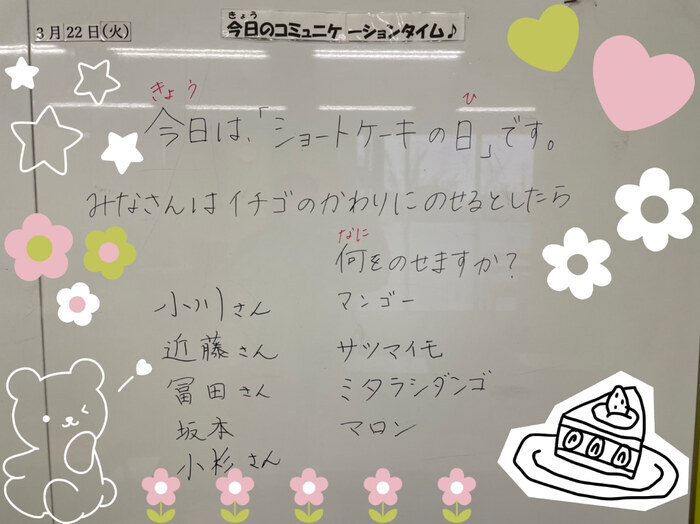 3月22日(火)
きょう
今日のコミュニケーションタイム♪
きょう ひ
今日は、「ショートケーキの日」です。
みなさんはイチゴのかわりにのせるとしたら
なに
何をのせますか?
小川さん マンゴー
近藤さん サツマイモ
冨田さん ミタラシダンゴ
坂本 マロン
小杉さん